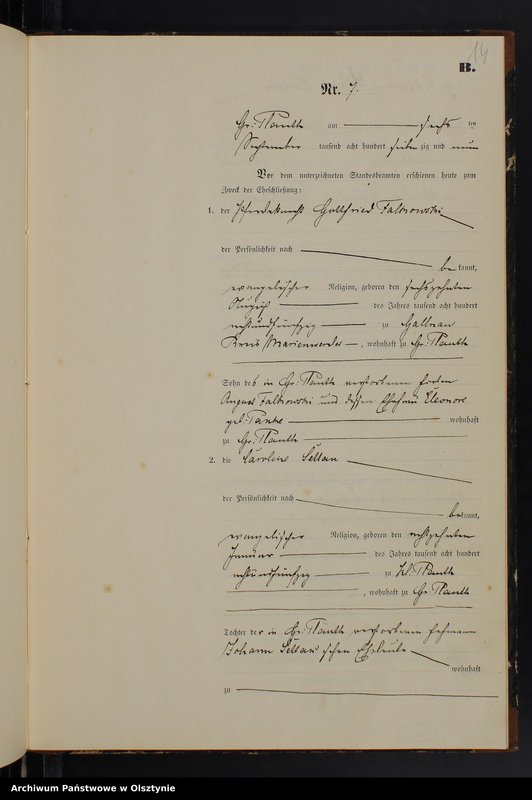 14
B.
Nr. 7.
Gr. Plauth am sechs ten
September tausend acht hundert sieben zig und neun
Vor dem unterzeichneten Standesbeamten erschienen heute zum
Zweck der Eheschließung:
1. der Pferdeknecht Gottfried Falkowski
der Persönlichkeit nach
be kannt,
evangelischer Religion, geboren den sechszehnten
des Jahres tausend acht hundert
achtundfünfzig zu
Kreis Marienwerder, wohnhaft zu Gr. Plauth
Sohn des in Gr. Plauth verstorbenen
August Falkowski und dessen Ehefrau Eleonore
geb. wohnhaft
zu Gr. Plauth
2. die Caroline
der Persönlichkeit nach
bekannt,
evangelischer Religion, geboren den achtzehnten
Januar des Jahres tausend acht hundert
achtundfünfzig zu Kl. Plauth
, wohnhaft zu Gr. Plauth
Tochter der in Gr. Plauth verstorbenen
Johann schen Eheleute
wohnhaft
zu
Archiwum Państwowe w Olsztynie